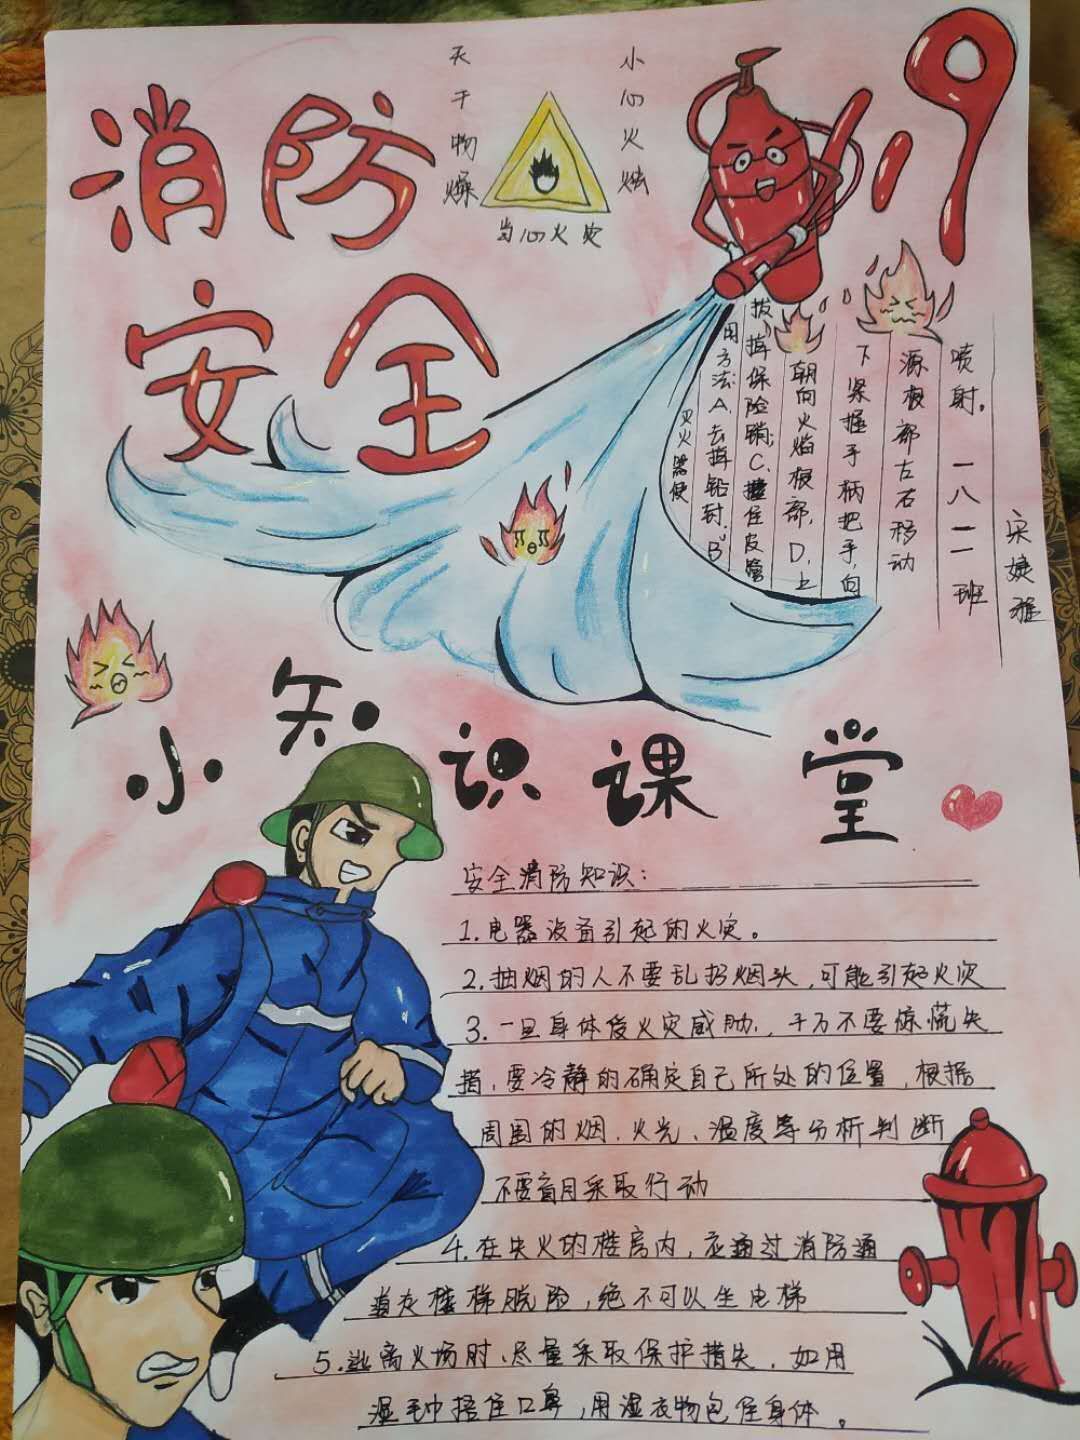 消防
安全
天干物燥
小心火烛
当心火灾
119
灭火器使
用方法:A、去掉铅封,B、
拔掉保险销;C、握住皮管
朝向火焰根部,D、上
下紧握手柄把手,向
源根部左右移动
喷射。一八一一班
宋婕雅
小知识课堂
安全消防知识:
1.电器设备引起的火灾。
2.抽烟的人不要乱扔烟头,可能引起火灾
3.一旦身体受火灾威胁,千万不要惊慌失
措,要冷静的确定自己所处的位置,根据
周围的烟、火光、温度等分析判断
不要盲目采取行动
4.在失火的楼房内,应通过消防通
道及楼梯脱险,绝不可以坐电梯
5.逃离火场时、尽量采取保护措失,如用
湿毛巾捂住口鼻,用湿衣物包住身体。